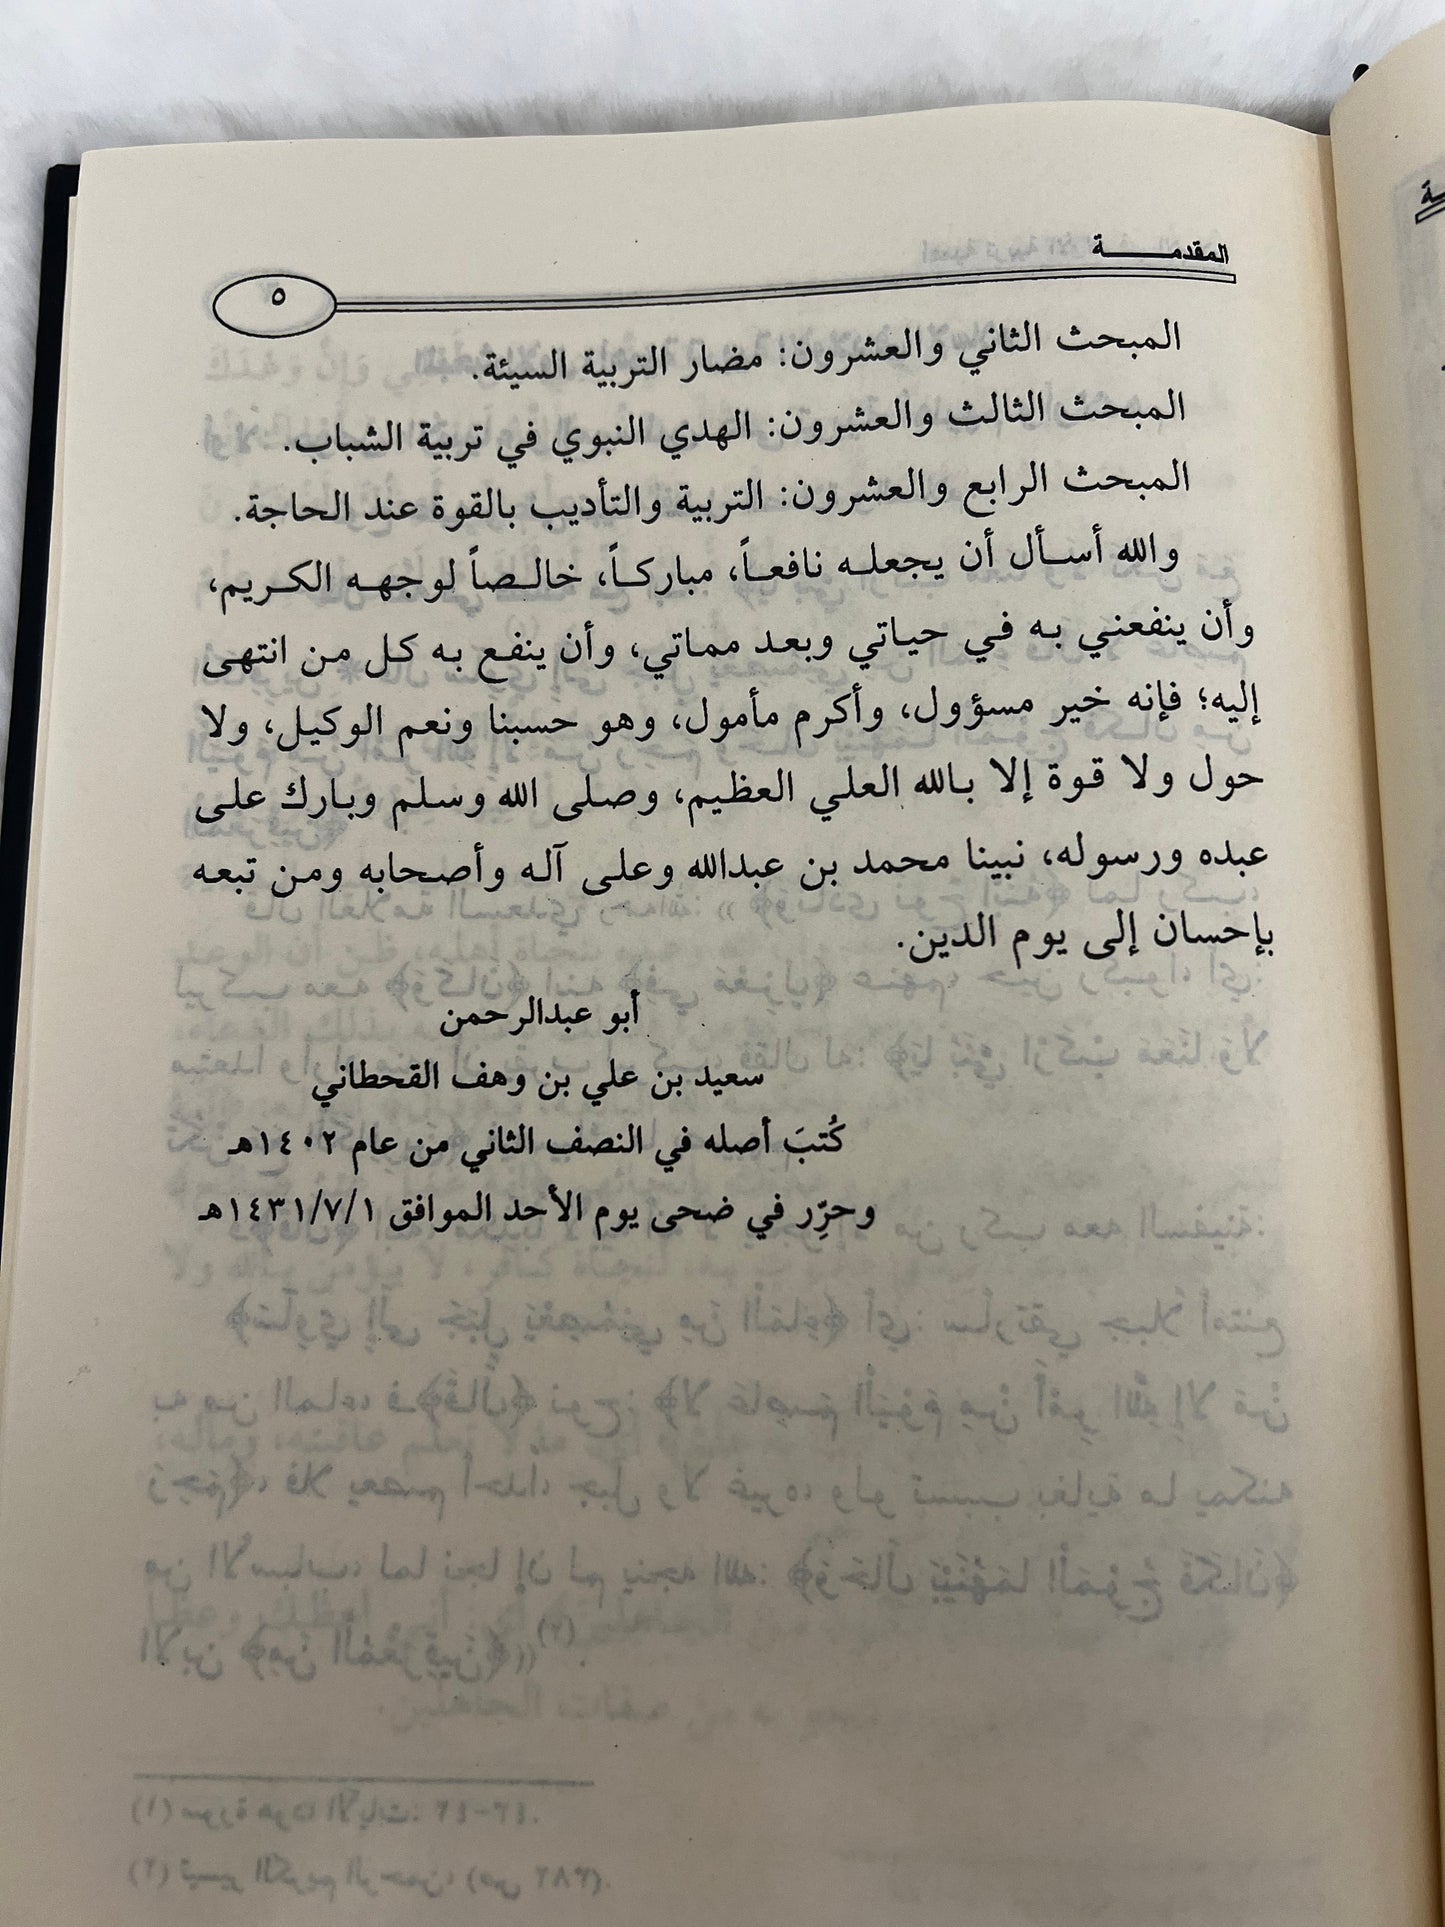 المقدمـــــــة
٥
المبحث الثاني والعشرون: مضار التربية السيئة.
المبحث الثالث والعشرون: الهدي النبوي في تربية الشباب.
المبحث الرابع والعشرون: التربية والتأديب بالقوة عند الحاجة.
والله أسأل أن يجعله نافعاً، مباركاً، خالصاً لوجهه الكريم،
وأن ينفعني به في حياتي وبعد مماتي، وأن ينفع به كل من انتهى
إليه؛ فإنه خير مسؤول، وأكرم مأمول، وهو حسبنا ونعم الوكيل، ولا
حول ولا قوة إلا بالله العلي العظيم، وصلى الله وسلم وبارك على
عبده ورسوله، نبينا محمد بن عبدالله وعلى آله وأصحابه ومن تبعه
بإحسان إلى يوم الدين.
أبو عبدالرحمن
سعيد بن علي بن وهف القحطاني
كُتبَ أصله في النصف الثاني من عام ١٤٠٢هـ
وحرِّر في ضحى يوم الأحد الموافق ١٤٣١/٧/١هـ